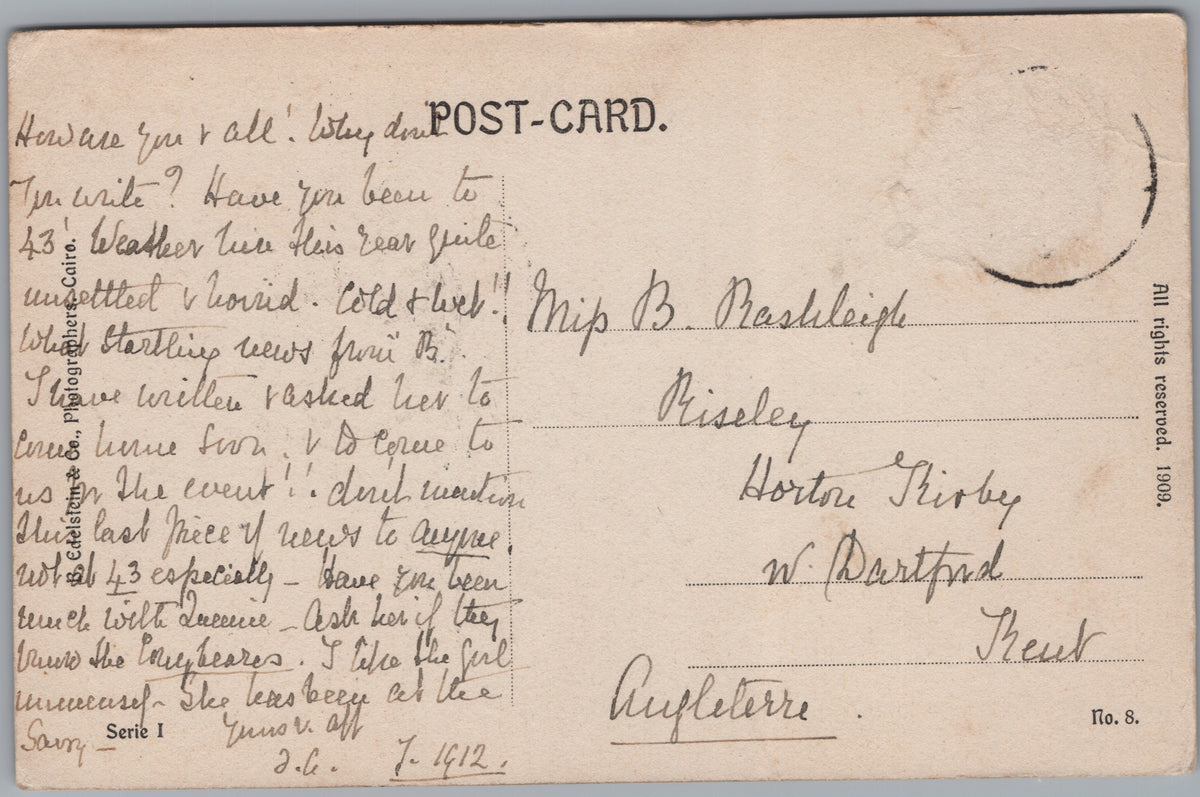 POST-CARD.
How are you & all! Why don't
you write? Have you been to
43! Weather here this year quite
unsettled & horrid. Cold & wet!!
What startling news from B.
I have written & asked her to
come home soon. & to come to
us for the event!! don't mention
this last piece of news to anyone.
not at 43 especially - Have you been
much with Queenie - Ask her if they
know the Conybeares. I like the girl
immensely - She has been at the
Savoy -
Yours v. aff
J. 1912.
Miss B. Rashleigh
Riseley
Horton Kirby
Dartford
Kent
Angleterre.
B. Edelstein & Co., Photographers, Cairo.
All rights reserved. 1909.
Serie I
No. 8.